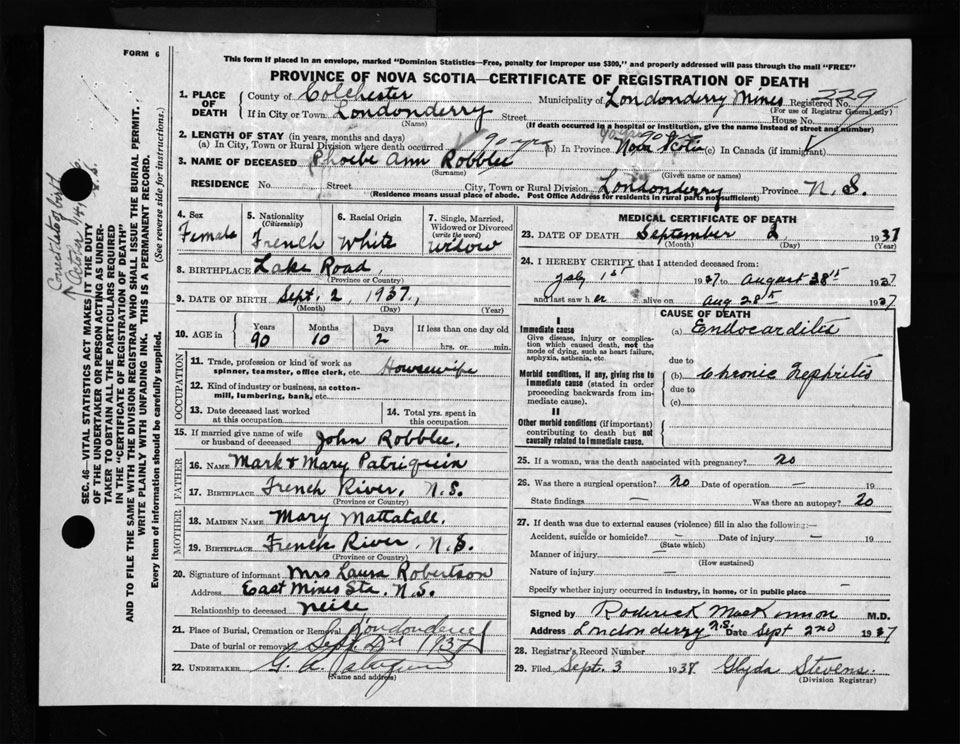 FORM 6
This form If placed in an envelope, marked "Dominion Statistics—Free, penalty for improper use $300," and properly addressed will pass through the mail "FREE"
PROVINCE OF NOVA SCOTIA—CERTIFICATE OF REGISTRATION OF DEATH
1. PLACE OF DEATH County of Colchester Municipality of Londonderry Mines Registered No. 329
(For use of Registrar General only)
If in City or Town Londonderry Street House No.
(Name) (If death occurred in a hospital or institution, give the name instead of street and number)
2. LENGTH OF STAY (in years, months and days)
(a) In City, Town or Rural Division where death occurred 90 yrs (b) In Province 90 Nova Scotia (c) In Canada (if immigrant)
3. NAME OF DECEASED Phoebe Ann Robblee
(Surname) (Given name or names)
RESIDENCE No. Street City, Town or Rural Division Londonderry Province N. S.
(Residence means usual place of abode. Post Office Address for residents in rural parts not sufficient)
4. Sex Female
5. Nationality (Citizenship) French
6. Racial Origin White
7. Single, Married, Widowed or Divorced (write the word) Widow
8. BIRTHPLACE Lake Road,
(Province or Country)
9. DATE OF BIRTH Sept. 2, 1937,
(Month) (Day) (Year)
10. AGE in Years 90 Months 10 Days 2 If less than one day old
hrs. or min.
OCCUPATION
11. Trade, profession or kind of work as spinner, teamster, office clerk, etc. Housewife
12. Kind of industry or business, as cotton-mill, lumbering, bank, etc.
13. Date deceased last worked at this occupation
14. Total yrs. spent in this occupation
15. If married give name of wife or husband of deceased John Robblee.
FATHER
16. NAME Mark & Mary Patriquin
17. BIRTHPLACE French River, N.S.
(Province or Country)
MOTHER
18. MAIDEN NAME Mary Mattatall.
19. BIRTHPLACE French River, N.S.
(Province or Country)
20. Signature of informant Mrs Laura Robertson
Address East Mines Sta. N.S.
Relationship to deceased Neise
21. Place of Burial, Cremation or Removal Londonderry
Date of burial or removal Sept. 1937
22. UNDERTAKER G. A.
(Name and address)
MEDICAL CERTIFICATE OF DEATH
23. DATE OF DEATH September 2, 1937
(Month) (Day) (Year)
24. I HEREBY CERTIFY that I attended deceased from:
July 1st 1937 to August 28th 1937
and last saw her alive on Aug 28th 1937
CAUSE OF DEATH
I
Immediate cause
Give disease, injury or complication which caused death, not the mode of dying, such as heart failure, asphyxia, asthenia, etc.
(a) Endocarditis
due to
Morbid conditions, if any, giving rise to immediate cause (stated in order proceeding backwards from immediate cause).
(b) Chronic Nephritis
due to
(c)
II
Other morbid conditions (if important) contributing to death but not causally related to immediate cause.
25. If a woman, was the death associated with pregnancy? no
26. Was there a surgical operation? no Date of operation — 19
State findings — Was there an autopsy? no
27. If death was due to external causes (violence) fill in also the following:—
Accident, suicide or homicide? — Date of injury — 19
(State which)
Manner of injury —
(How sustained)
Nature of injury —
Specify whether injury occurred in industry, in home, or in public place —
Signed by Roderick MacKinnon M.D.
Address Londonderry N.S. Date Sept 2nd 1937
28. Registrar's Record Number
29. Filed Sept. 3 1937 Glyda Stevens.
(Division Registrar)
SEC. 46—VITAL STATISTICS ACT MAKES IT THE DUTY
OF THE UNDERTAKER OR PERSON ACTING AS UNDER-
TAKER TO OBTAIN ALL THE PARTICULARS REQUIRED
IN THE "CERTIFICATE OF REGISTRATION OF DEATH"
AND TO FILE THE SAME WITH THE DIVISION REGISTRAR WHO SHALL ISSUE THE BURIAL PERMIT.
WRITE PLAINLY WITH UNFADING INK. THIS IS A PERMANENT RECORD.
Every item of information should be carefully supplied. (See reverse side for instructions.)